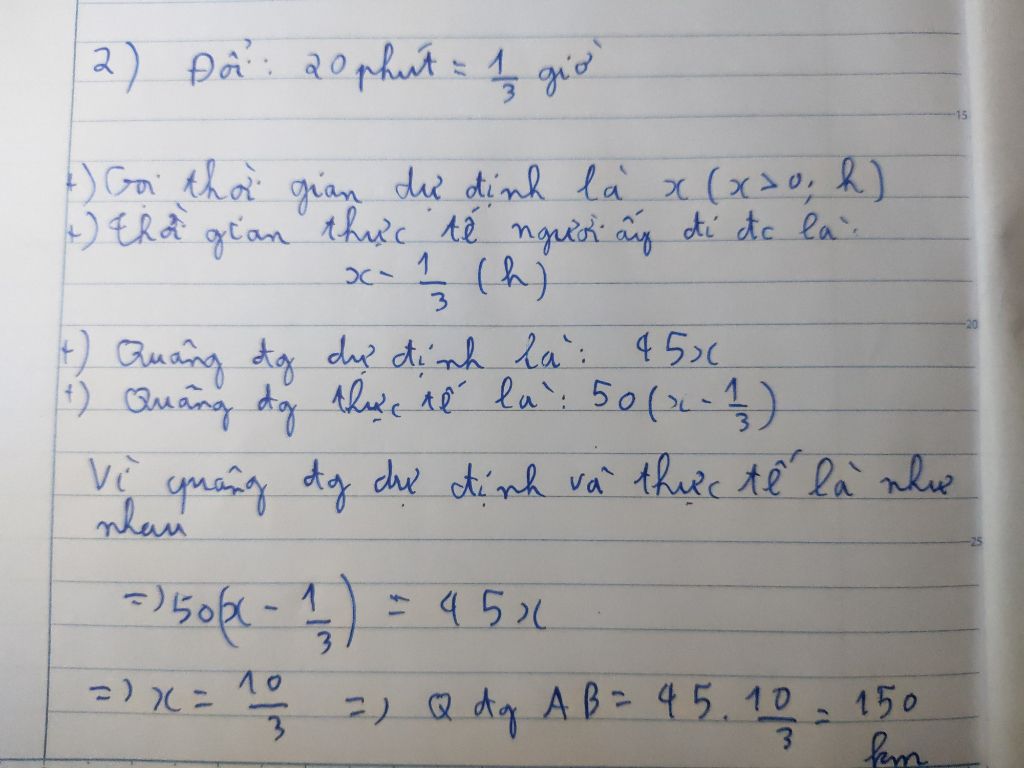 2) Đổi: 20 phút = 1/3 giờ
15
+) Gọi thời gian dự định là x (x>0; h)
+) thời gian thực tế người ấy đi đc là:
x - 1/3 (h)
20
+) Quãng đg dự định là: 45x
+) Quãng đg thực tế là: 50(x - 1/3)
Vì quãng đg dự định và thực tế là như
nhau
25
=> 50(x - 1/3) = 45x
=> x = 10/3 => Q đg AB = 45. 10/3 = 150
km